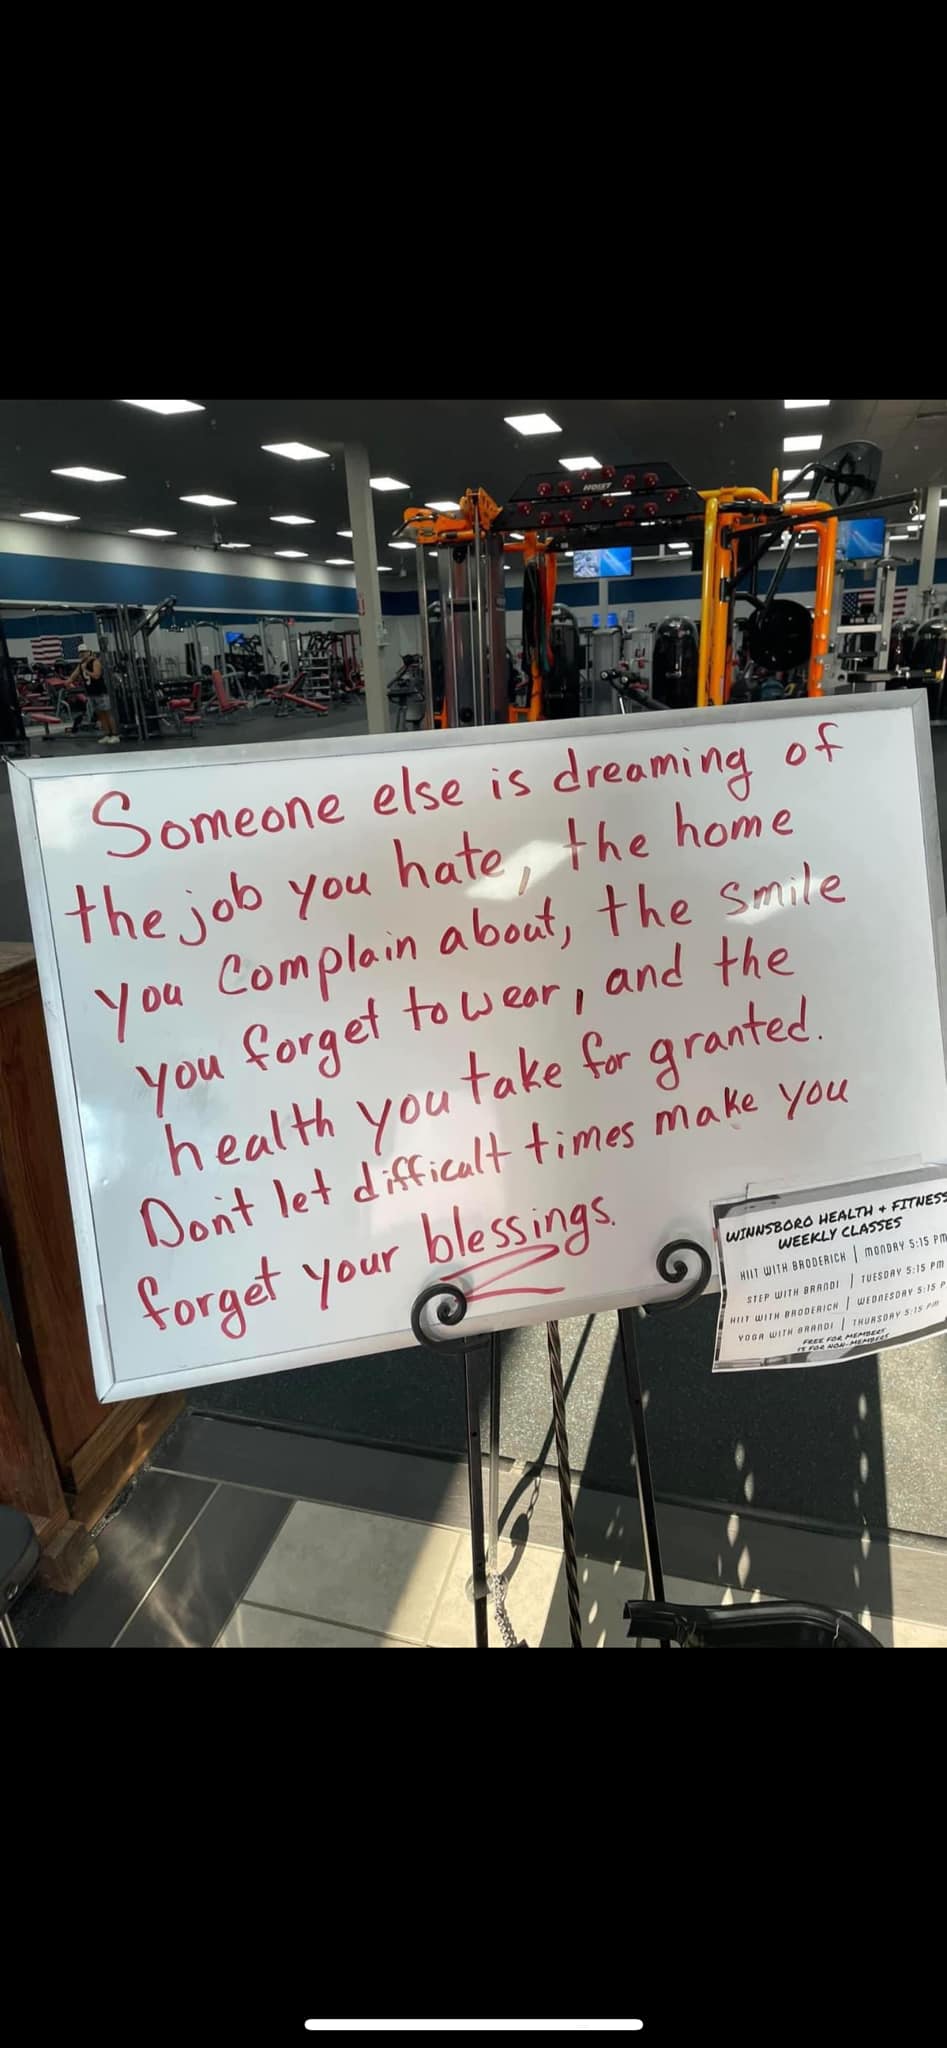 HOIST
Someone else is dreaming of
the job you hate, the home
you complain about, the smile
you forget to wear, and the
health you take for granted.
Don't let difficult times make you
forget your blessings.
WINNSBORO HEALTH + FITNESS
WEEKLY CLASSES
HIIT WITH BRODERICK | MONDAY 5:15 PM
STEP WITH BRANDI | TUESDAY 5:15 PM
HIIT WITH BRODERICK | WEDNESDAY 5:15 P
YOGA WITH BRANDI | THURSDAY 5:15 PM
FREE FOR MEMBERS
FOR NON-MEMBERS